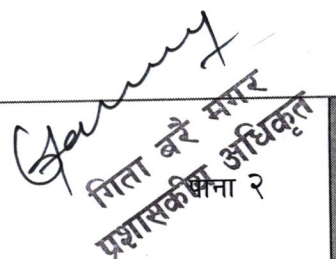 गिता बरै मगर
प्रशासकीय अधिकृत
पाना २